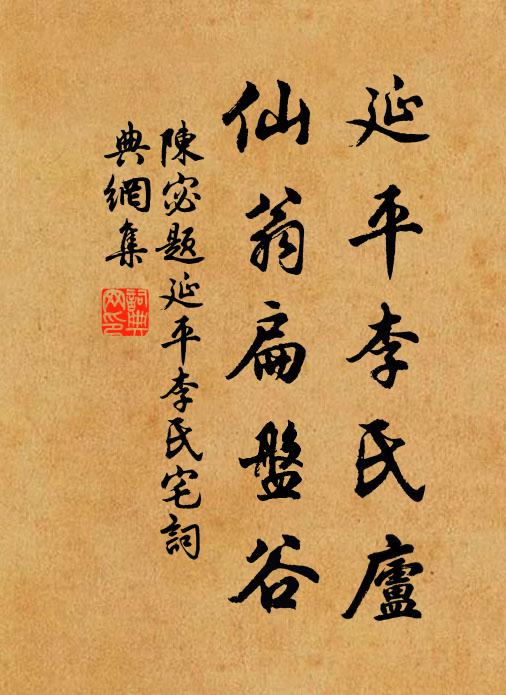 延平李氏廬
仙翁扁盤谷
陳宓題延平李氏宅詞
典網集
詞典網印